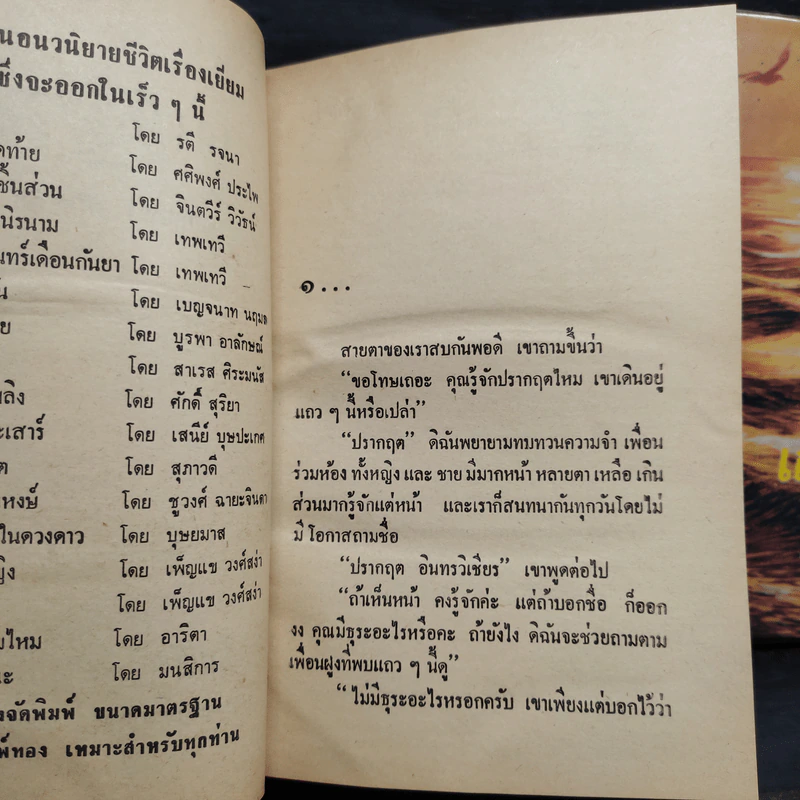 นอนวนิยายชีวิตเรื่องเยี่ยม
ซึ่งจะออกในเร็ว ๆ นี้
ท้าย โดย รตี รจนา
ชิ้นส่วน โดย ศศิพงศ์ ประไพ
นิรนาม โดย จินตวีร์ วิวัธน์
โดย เทพเทวี
นทร์เดือนกันยา โดย เทพเทวี
โดย เบญจนาท นฤมต
ย โดย บูรพา อาลักษณ์
โดย สาเรส ศิระมนัส
ลิง โดย ศักดิ์ สุริยา
ะเสาร์ โดย เสนีย์ บุษปะเกศ
ต โดย สุภาวดี
หงษ์ โดย ชูวงศ์ ฉายะจินดา
ในดวงดาว โดย บุษยมาส
ญิง โดย เพ็ญแข วงศ์สง่า
โดย เพ็ญแข วงศ์สง่า
ไหม โดย อาริตา
ะ โดย มนสิการ
งจัดพิมพ์ ขนาดมาตรฐาน
พ์ทอง เหมาะสำหรับทุกท่าน
๑...
สายตาของเราสบกันพอดี เขาถามขึ้นว่า
“ขอโทษเถอะ คุณรู้จักปรากฤตไหม เขาเดินอยู่
แถว ๆ นี้หรือเปล่า”
“ปรากฤต” ดิฉันพยายามทบทวนความจำ เพื่อน
ร่วมห้อง ทั้งหญิง และ ชาย มีมากหน้า หลายตา เหลือ เกิน
ส่วนมากรู้จักแต่หน้า และเราก็สนทนากันทุกวันโดยไม่
มี โอกาสถามชื่อ
“ปรากฤต อินทรวิเชียร” เขาพูดต่อไป
“ถ้าเห็นหน้า คงรู้จักค่ะ แต่ถ้าบอกชื่อ ก็ออก
งง คุณมีธุระอะไรหรือคะ ถ้ายังไง ดิฉันจะช่วยถามตาม
เพื่อนฝูงที่พบแถว ๆ นี้ดู”
“ไม่มีธุระอะไรหรอกครับ เขาเพียงแต่บอกไว้ว่า